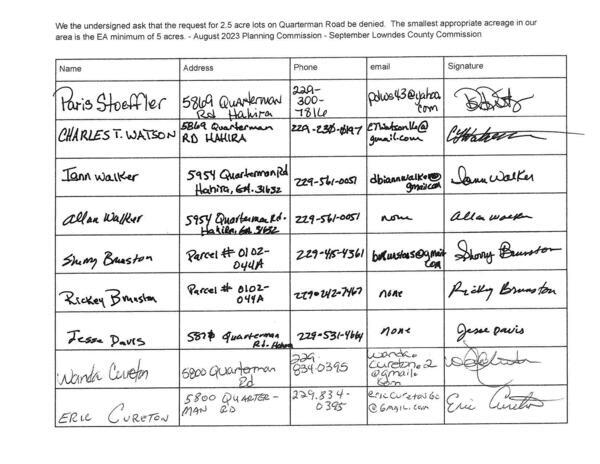 We the undersigned ask that the request for 2.5 acre lots on Quarterman Road be denied. The smallest appropriate acreage in our
area is the EA minimum of 5 acres. - August 2023 Planning Commission - September Lowndes County Commission
Name Address Phone email Signature
Paris Stoeffler 5869 Quarterman Rd Hahira 229-300-7816
CHARLES T. WATSON 5869 Quarterman RD HAHIRA 229-230-0197 CTWatson16@gmail.com
Jann Walker 5954 Quarterman Rd Hahira, GA. 31632 229-561-0051 Jann Walker
Allan Walker 5954 Quarterman Rd. Hahira, GA 31632 229-561-0051 none Allan Walker
Brunston Parcel # 0102-044A 229-415-4361 Brunston
Rickey Brunston Parcel # 0102-044A 229-242-7467 none Ricky Brunston
Jesse Davis Quarterman Rd. Hahira 229-531-4664 none Jesse Davis
Wanda Cureton 5800 Quarterman Rd 229 834-0395 wanda.cureton.2@gmail.com
ERIC CURETON 5800 QUARTER-MAN RD 229.834-0395 Eric Cureton